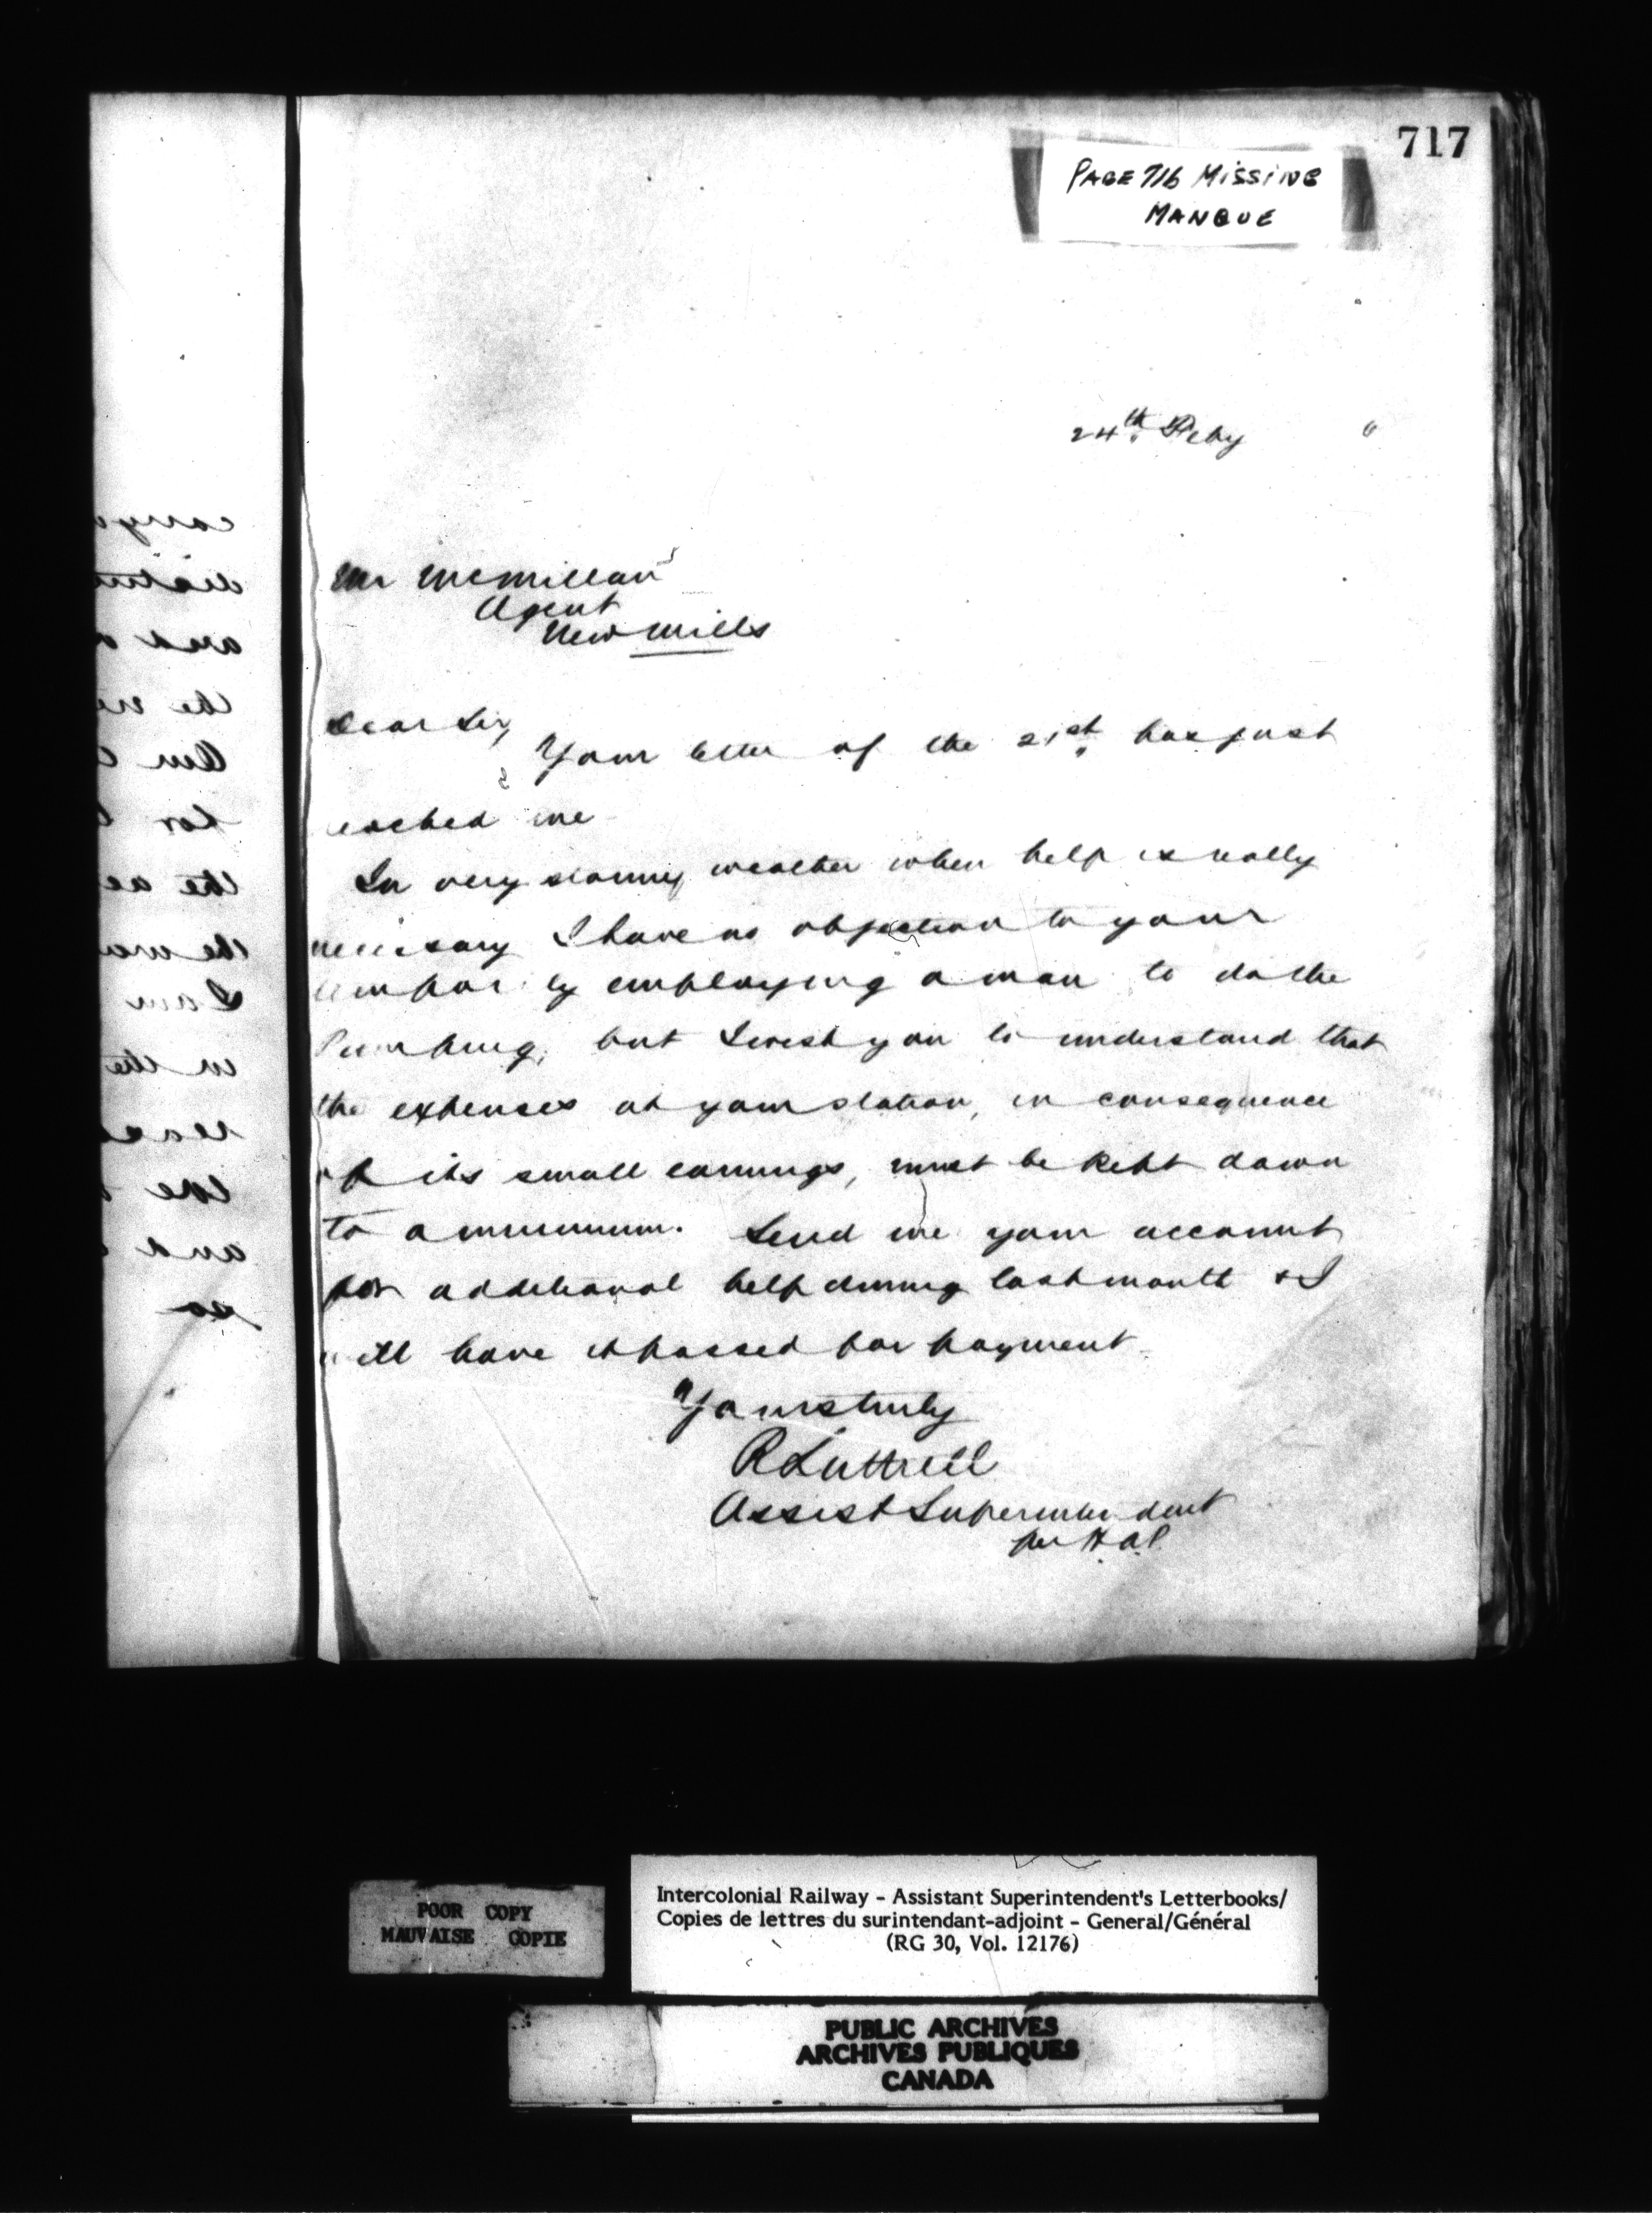 717
PAGE 716 MISSING
MANQUE
24th Feby "
Mr McMillan
Agent
New Mills
Dear Sir,
Your letter of the 21st has just
reached me
In very stormy weather when help is really
necessary I have no objection to your
temporarily employing a man to do the
Pumping, but I wish you to understand that
the expenses at your station, in consequence
of its small earnings, must be kept down
to a minimum. Send me your account
for additional help during last month & I
will have it passed for payment
Yours truly
R Luttrell
Assist Superintendent
per H.A.P.
POOR COPY
MAUVAISE COPIE
Intercolonial Railway - Assistant Superintendent's Letterbooks/
Copies de lettres du surintendant-adjoint - General/Général
(RG 30, Vol. 12176)
PUBLIC ARCHIVES
ARCHIVES PUBLIQUES
CANADA